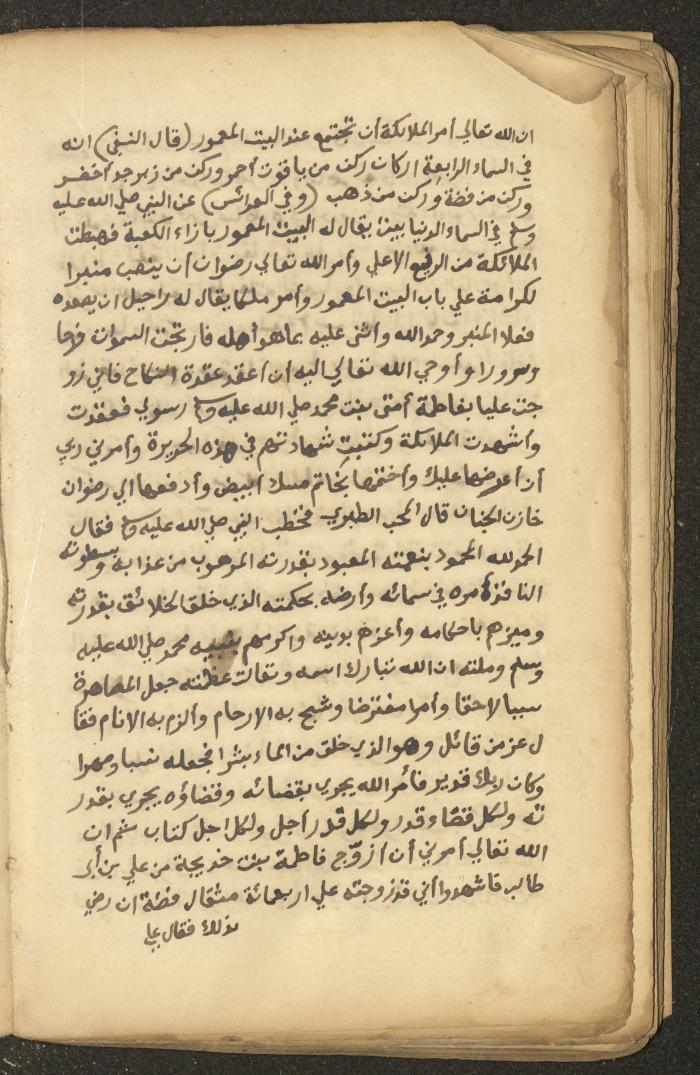 ان الله تعالي أمر الملائكة أن تجتمع عند البيت المعمور (قال النسفي) انه
في السماء الرابعة اركان ركن من ياقوت أحمر وركن من زبرجد أخضر
وركن من فضة وركن من ذهب (وفي العرائس) عن النبي صلي الله عليه
وسلم في السماء الدنيا بيت يقال له البيت المعمور بازاء الكعبة فهبطت
الملائكة من الرفيع الاعلي وأمر الله تعالي رضوان أن ينصب منبرا
لكرامة علي باب البيت المعمور وأمر ملكا يقال له راحيل ان يصعده
فعلا المنبر وحمد الله واثني عليه بما هو أهله فارتجت السموات فرحا
وسرورا وأوحي الله تعالي اليه أن أعقد عقدة النكاح فاني زو
جت عليا بفاطمة أمتي بنت محمد صلي الله عليه وسلم رسولي فعقدت
وأشهدت الملائكة وكتبت شهادتهم في هذه الحريرة وأمرني ربي
أن أعرضها عليك وأختمها بخاتم مسك أبيض وأدفعها الي رضوان
خازن الجنان قال المحب الطبري فخطب النبي صلي الله عليه وسلم فقال
الحمد لله المحمود بنعمته المعبود بقدرته المرهوب من عذابه وسطوته
النافذ أمره في سمائه وأرضه بحكمته الذي خلق الخلائق بقدرته
وميزهم باحكامه وأعزهم بدينه واكرمهم بنبيه محمد صلي الله عليه
وسلم وملته ان الله تبارك اسمه وتعالت عظمته جعل المصاهرة
سببا لاحقا وأمرا مفترضا وشبح به الارحام وألزم به الانام فقا
ل عز من قائل وهو الذي خلق من الماء بشرا فجعله نسبا وصهرا
وكان ربك قدير فأمر الله يجري بقضائه وقضاؤه يجري بقدر
ته ولكل قضاء وقدر ولكل قدر أجل ولكل اجل كتاب ثم ان
الله تعالي أمرني أن أزوّج فاطمة بنت خديجة من علي بن أبي
طالب فاشهدوا أني قد زوجته علي اربعمائة مثقال فضة ان رضي
بذلك فقال علي